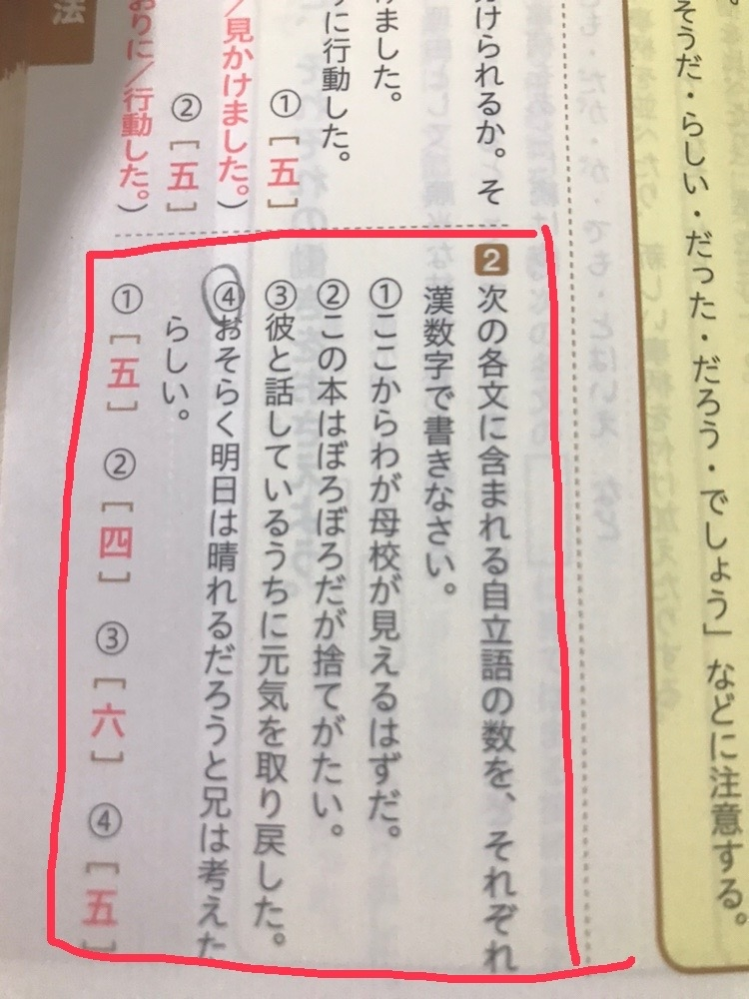 そうだ・らしい・だった・だろう・でしょう」などに注意する。
けられるか。そ
けました。
に行動した。
①［五］
／見かけました。）
②［五］
おりに／行動した。）
法
2 次の各文に含まれる自立語の数を、それぞれ
漢数字で書きなさい。
①ここからわが母校が見えるはずだ。
②この本はぼろぼろだが捨てがたい。
③彼と話しているうちに元気を取り戻した。
④おそらく明日は晴れるだろうと兄は考えた
らしい。
①［五］ ②［四］ ③［六］ ④［五］